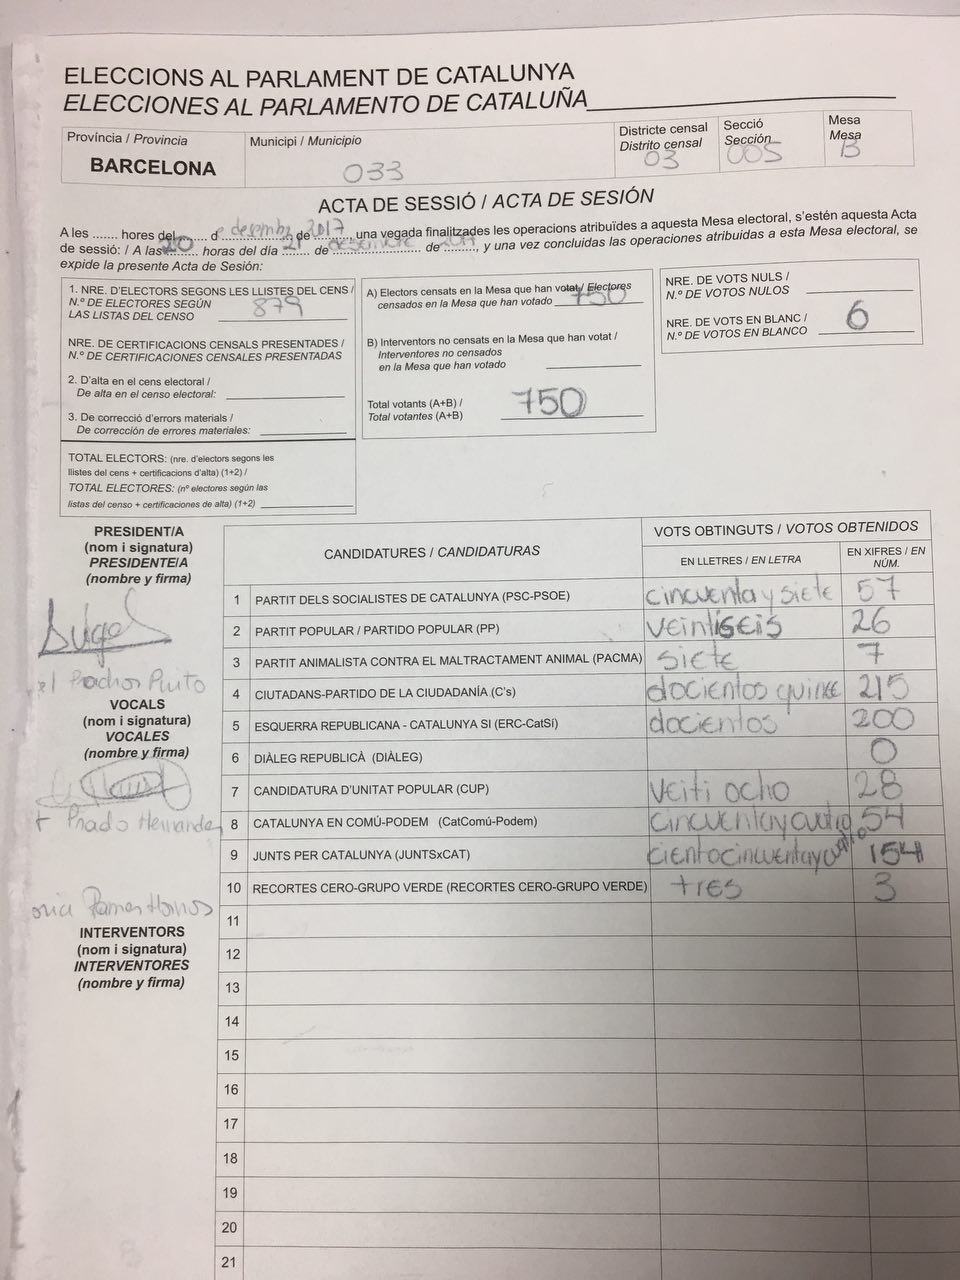 ELECCIONS AL PARLAMENT DE CATALUNYA
ELECCIONES AL PARLAMENTO DE CATALUÑA
Província / Provincia
BARCELONA
Municipi / Municipio
033
Districte censal
Distrito censal
03
Secció
Sección
005
Mesa
Mesa
B
ACTA DE SESSIÓ / ACTA DE SESIÓN
A les ....... hores del ....... d desembre de 2017 una vegada finalitzades les operacions atribuïdes a aquesta Mesa electoral, s'estén aquesta Acta
de sessió: / A las 20 horas del día 21 de ....... de ......., y una vez concluidas las operaciones atribuidas a esta Mesa electoral, se
expide la presente Acta de Sesión:
1. NRE. D'ELECTORS SEGONS LES LLISTES DEL CENS /
N.º DE ELECTORES SEGÚN
LAS LISTAS DEL CENSO 879
NRE. DE CERTIFICACIONS CENSALS PRESENTADES /
N.º DE CERTIFICACIONES CENSALES PRESENTADAS
2. D'alta en el cens electoral /
De alta en el censo electoral:
3. De correcció d'errors materials /
De corrección de errores materiales:
TOTAL ELECTORS: (nre. d'electors segons les
llistes del cens + certificacions d'alta) (1+2) /
TOTAL ELECTORES: (nº electores según las
listas del censo + certificaciones de alta) (1+2)
A) Electors censats en la Mesa que han votat / Electores
censados en la Mesa que han votado 750
B) Interventors no censats en la Mesa que han votat /
Interventores no censados
en la Mesa que han votado
Total votants (A+B) /
Total votantes (A+B) 750
NRE. DE VOTS NULS /
N.º DE VOTOS NULOS
NRE. DE VOTS EN BLANC /
N.º DE VOTOS EN BLANCO 6
PRESIDENT/A
(nom i signatura)
PRESIDENTE/A
(nombre y firma)
VOCALS
(nom i signatura)
VOCALES
(nombre y firma)
Prado Hernandez
INTERVENTORS
(nom i signatura)
INTERVENTORES
(nombre y firma)
CANDIDATURES / CANDIDATURAS
VOTS OBTINGUTS / VOTOS OBTENIDOS
EN LLETRES / EN LETRA
EN XIFRES / EN NÚM.
1 PARTIT DELS SOCIALISTES DE CATALUNYA (PSC-PSOE) cincuenta y siete 57
2 PARTIT POPULAR / PARTIDO POPULAR (PP) veintiseis 26
3 PARTIT ANIMALISTA CONTRA EL MALTRACTAMENT ANIMAL (PACMA) siete 7
4 CIUTADANS-PARTIDO DE LA CIUDADANÍA (C's) docientos quince 215
5 ESQUERRA REPUBLICANA - CATALUNYA SI (ERC-CatSí) docientos 200
6 DIÀLEG REPUBLICÀ (DIÀLEG) 0
7 CANDIDATURA D'UNITAT POPULAR (CUP) veiti ocho 28
8 CATALUNYA EN COMÚ-PODEM (CatComú-Podem) cincuentaycuatro 54
9 JUNTS PER CATALUNYA (JUNTSxCAT) cientocincuentaycuatro 154
10 RECORTES CERO-GRUPO VERDE (RECORTES CERO-GRUPO VERDE) tres 3
11
12
13
14
15
16
17
18
19
20
21